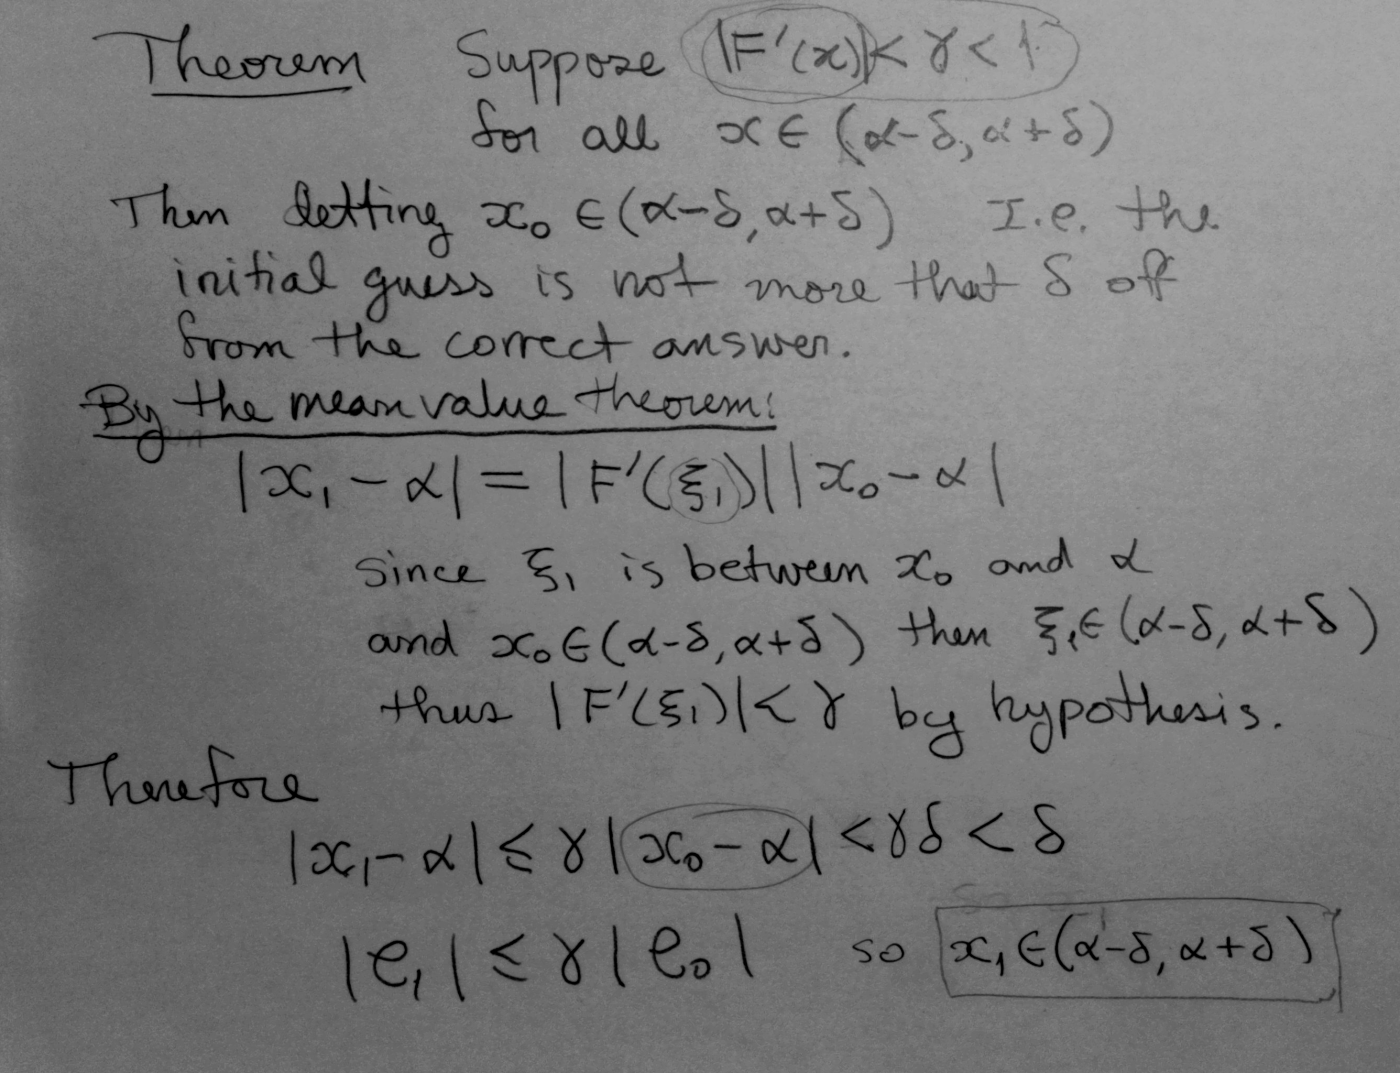 Theorem Suppose |F'(x)| < γ < 1
for all x ∈ (α-δ, α+δ)
Then letting x₀ ∈ (α-δ, α+δ) I.e. the
initial guess is not more that δ off
from the correct answer.
By the mean value theorem:
|x₁ - α| = |F'(ξ₁)| |x₀ - α|
since ξ₁ is between x₀ and α
and x₀ ∈ (α-δ, α+δ) then ξ₁ ∈ (α-δ, α+δ)
thus |F'(ξ₁)| < γ by hypothesis.
Therefore
|x₁ - α| ≤ γ |x₀ - α| < γδ < δ
|e₁| ≤ γ |e₀| so x₁ ∈ (α-δ, α+δ)